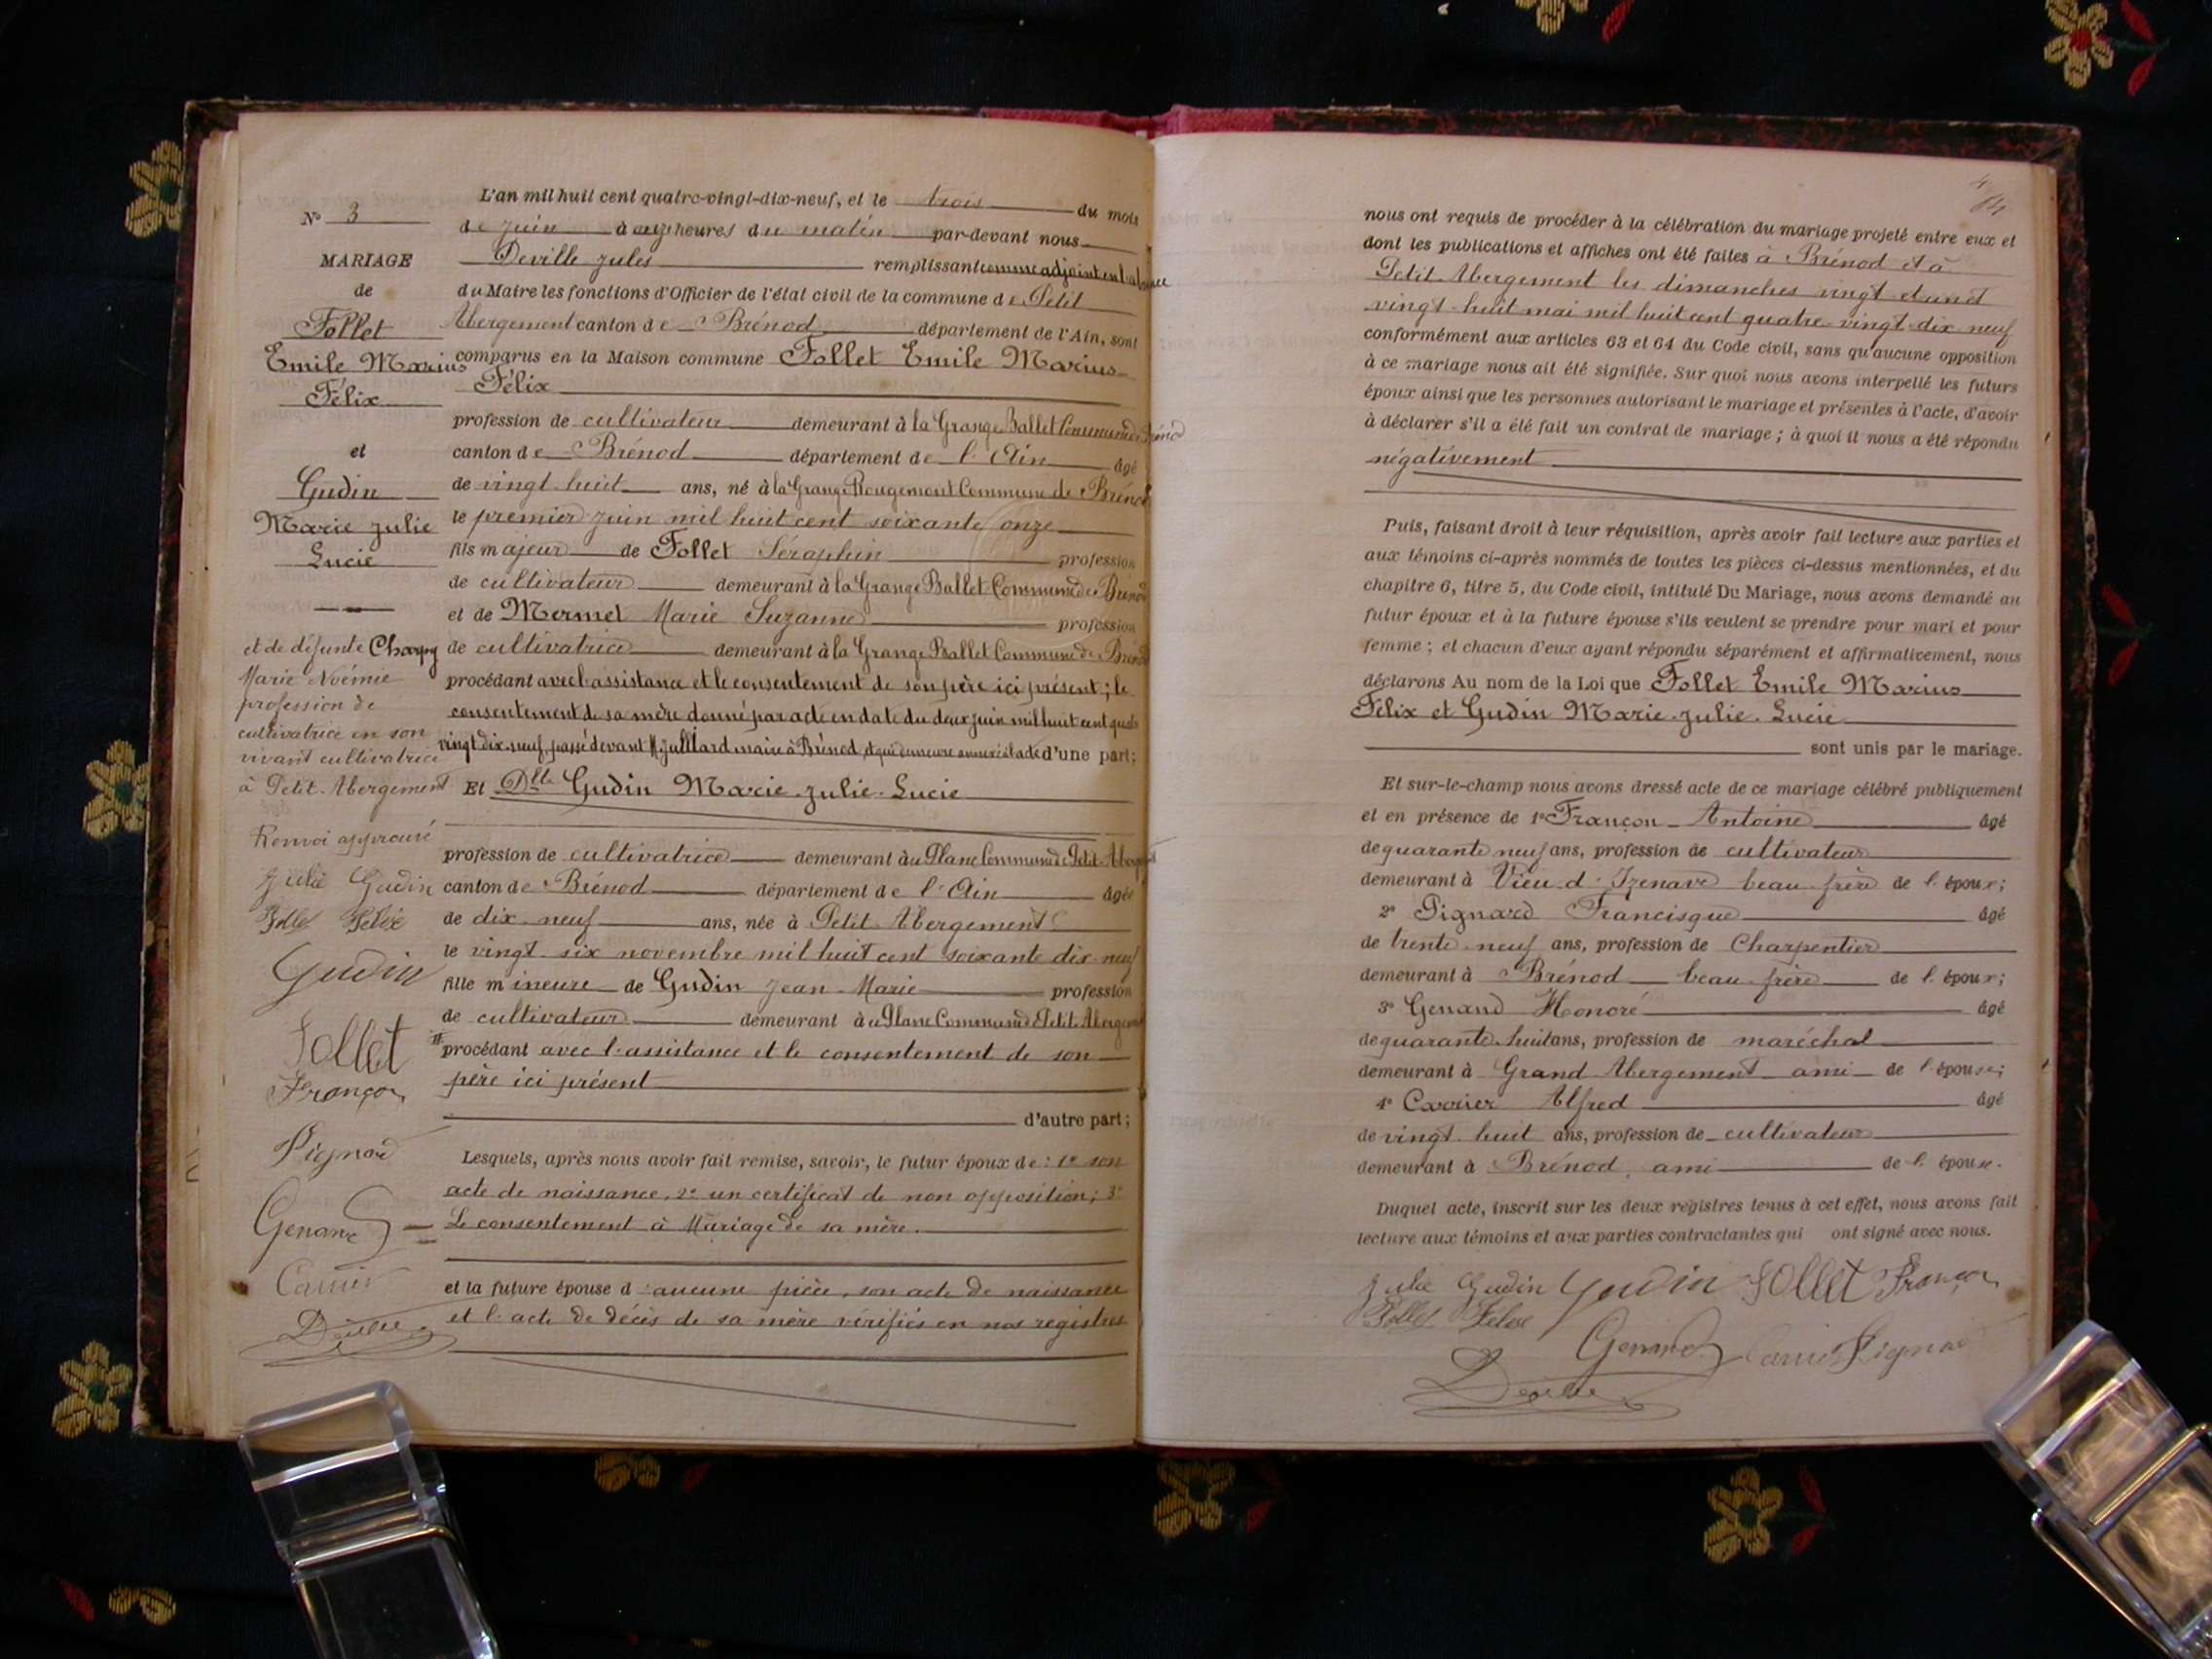 N° 3
MARIAGE
de
Follet
Emile Marius
Félix
et
Gudin
Marie Julie
Lucie
et de défunte Charpy
Marie Noémie
profession de
cultivatrice en son
vivant cultivatrice
à Petit-Abergement
Renvoi approuvé
Julie Gudin
Follet Félix
Gudin
Follet
Françon
Pignard
Genand
Carrier
Deville
L'an mil huit cent quatre-vingt-dix-neuf, et le trois du mois
de Juin à onze heures du matin par-devant nous
Deville Jules remplissant comme adjoint en absence
du Maire les fonctions d'Officier de l'état civil de la commune de Petit
Abergement canton de Brénod département de l'Ain, sont
comparus en la Maison commune Follet Emile Marius
Félix
profession de cultivateur demeurant à la Grange Ballet Commune de Brénod
canton de Brénod département de l'Ain âgé
de vingt-huit ans, né à la Grange Rougemont Commune de Brénod
le premier Juin mil huit cent soixante onze
fils majeur de Follet Séraphin profession
de cultivateur demeurant à la Grange Ballet Commune de Brénod
et de Mermet Marie Suzanne profession
de cultivatrice demeurant à la Grange Ballet Commune de Brénod
procédant avec l'assistance et le consentement de son père ici présent; le
consentement de sa mère donné par acte en date du deux juin mil huit cent quatre
vingt dix-neuf, passé devant M. Juillard maire à Brénod et qui demeure annexé à l'acte d'une part;
Et Dlle Gudin Marie-Julie-Lucie
profession de cultivatrice demeurant au Plane Commune de Petit-Abergement
canton de Brénod département de l'Ain âgée
de dix-neuf ans, née à Petit-Abergement
le vingt-six novembre mil huit cent soixante dix-neuf
fille mineure de Gudin Jean-Marie profession
de cultivateur demeurant au Plane Commune de Petit Abergement
procédant avec l'assistance et le consentement de son
père ici présent
d'autre part;
Lesquels, après nous avoir fait remise, savoir, le futur époux de: 1° son
acte de naissance, 2° un certificat de non opposition; 3°
Le consentement à Mariage de sa mère.
et la future épouse d'aucune pièce, son acte de naissance
et l'acte de décès de sa mère vérifiés en nos registres
nous ont requis de procéder à la célébration du mariage projeté entre eux et
dont les publications et affiches ont été faites à Brénod et à
Petit-Abergement les dimanches vingt-et-un et
vingt-huit mai mil huit cent quatre-vingt-dix-neuf
conformément aux articles 63 et 64 du Code civil, sans qu'aucune opposition
à ce mariage nous ait été signifiée. Sur quoi nous avons interpellé les futurs
époux ainsi que les personnes autorisant le mariage et présentes à l'acte, d'avoir
à déclarer s'il a été fait un contrat de mariage; à quoi il nous a été répondu
négativement
Puis, faisant droit à leur réquisition, après avoir fait lecture aux parties et
aux témoins ci-après nommés de toutes les pièces ci-dessus mentionnées, et du
chapitre 6, titre 5, du Code civil, intitulé Du Mariage, nous avons demandé au
futur époux et à la future épouse s'ils veulent se prendre pour mari et pour
femme; et chacun d'eux ayant répondu séparément et affirmativement, nous
déclarons Au nom de la Loi que Follet Emile Marius
Félix et Gudin Marie-Julie-Lucie
sont unis par le mariage.
Et sur-le-champ nous avons dressé acte de ce mariage célébré publiquement
et en présence de 1° Françon Antoine âgé
de quarante neuf ans, profession de cultivateur
demeurant à Vieu-d'Izenave beau-frère de l'époux;
2° Pignard Francisque âgé
de trente-neuf ans, profession de Charpentier
demeurant à Brénod beau-frère de l'époux;
3° Genand Honoré âgé
de quarante-huit ans, profession de maréchal
demeurant à Grand Abergement ami de l'épouse;
4° Carrier Alfred âgé
de vingt-huit ans, profession de cultivateur
demeurant à Brénod ami de l'épouse.
Duquel acte, inscrit sur les deux registres tenus à cet effet, nous avons fait
lecture aux témoins et aux parties contractantes qui ont signé avec nous.
Julie Gudin Gudin Follet Françon
Follet Félix
Genand Carrier Pignard
Deville